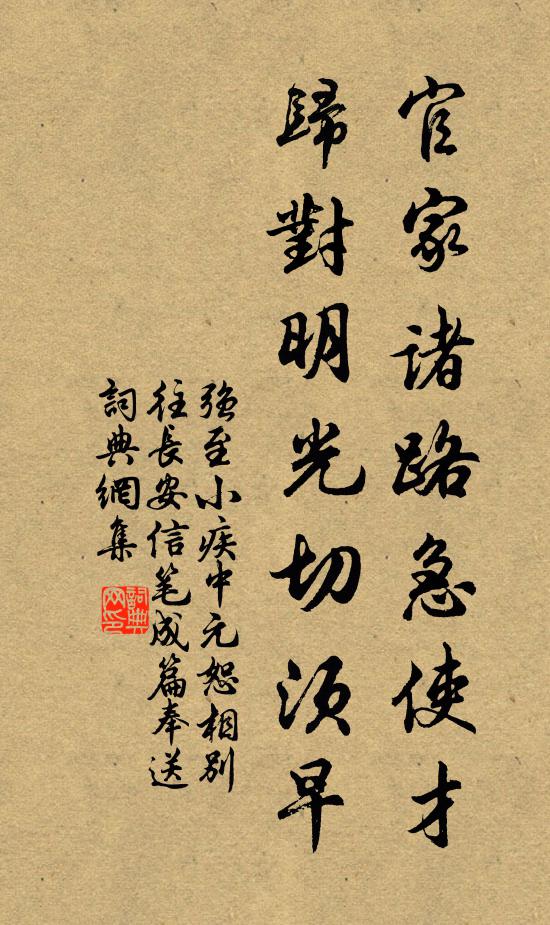 官家諸路急使才
歸對明光切須早
強至小疾中元恕相别
往長安信笔成篇奉送
詞典網集
詞典网印